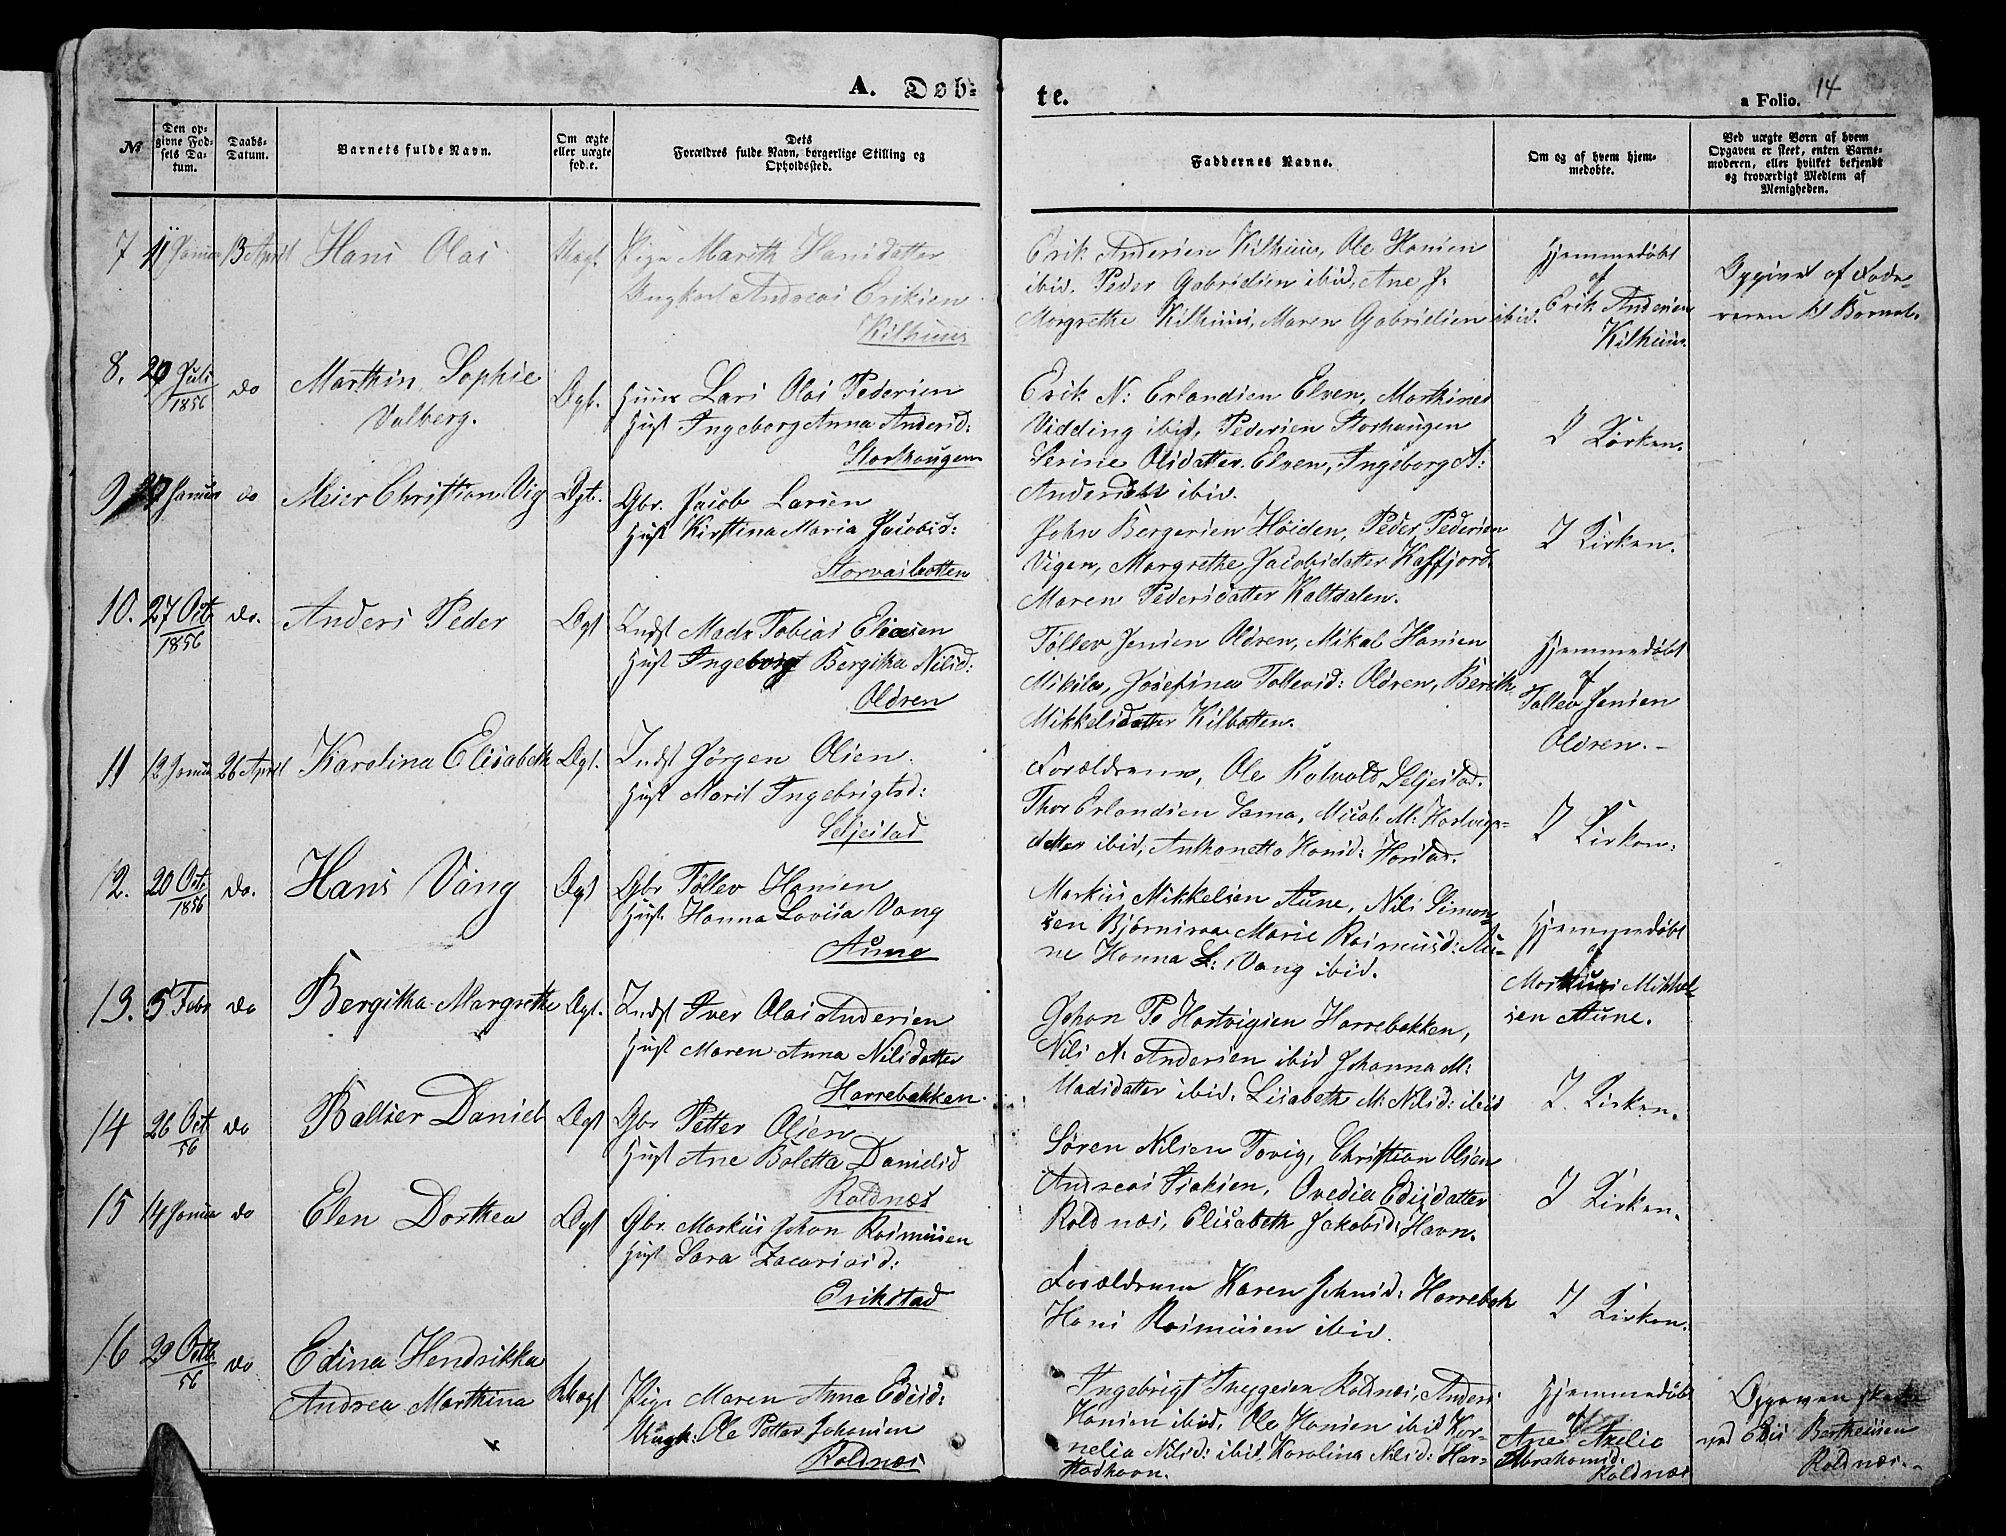 A. Døb-
te.
a Folio. 14
No
Den op-
givne Fød-
sels Da-
tum.
Daabs-
Datum.
Barnets fulde Navn.
Om ægte
eller uægte
fød.e.
Dets
Forældres fulde Navn, borgerlige Stilling og
Opholdssted.
Faddernes Navne.
Om og af hvem hjem-
medøbte.
Ved uægte Børn af hvem
Opgaven er skeet, enten Barne-
moderen, eller hvilket bekjendt
og troværdigt Medlem af
Menigheden.
7 11 Januar 13 April Hans Olai Uægt. Pige Marith Hansdatter
Ungkarl Andreas Eriksen
Kilhuus
Erik Andersen Kilhuus, Ole Hansen
ibid. Peder Gabrielsen ibid, Ane J.
Margrethe Kilhuus, Maren Gabrielsen ibid.
Hjemmedøbt
af
Erik Andersen
Kilhuus.
Opgivet af Fade-
reren til Barnet.
8. 29 Juli 1856 do Marthin Sophie
Valberg.
Ægt. Huusm Lars Olai Pedersen
Hust Ingeborg Anna Andersd:
Storhaugen
Erik N: Erlandsen Elven, Marthines
Vidding ibid, Pedersen Storhaugen
Serine Olsdatter Elven, Ingeborg A:
Andersdatt ibid.
I Kirken.
9 27 Januar do Meier Christian Vig Ægt. Gbr. Jacob Larsen
Hust Kirstina Maria Jacobsd:
Storvasbotten
John Bergersen Høiden, Peder Pedersen
Vigen, Margrethe Jacobsdatter Kaffjord.
Maren Pedersdatter Kaltdalen.
I Kirken.
10. 27 Oct. 1856 do. Anders Peder Ægt Indst Mads Tobias Eliasen
Hust Ingeborg Bergitha Nilsd:
Oldren
Tollev Jensen Oldren, Mikal Hansen
Mikila, Josefina Tollevsd: Oldren, Berith
Mikkelsdatter Kilbotten.
Hjemmedøbt
af
Tollev Jensen
Oldren.
11 12 Januar 26 April Karolina Elisabeth Ægt. Indst Jørgen Olsen.
Hust Marit Ingebrigtsd:
Seljestad
Forældrene, Ole Rolvold Seljestad.
Thor Erlandsen Sama, Micab. M: Hartvigs-
datter ibid, Anthonette Hansd: Harstad.
I Kirken.
12. 20 Oct. 1856 do. Hans Vang Ægt Gbr Tollev Hansen
Hust. Hanna Lovisa Vang
Aune
Markus Mikkelsen Aune, Nils Simon-
sen Bjørnsraa Marie Rasmusd: Au-
ne Hanna L: Vang ibid.
Hjemmedøbt
af
Markus Mikkel-
sen Aune.
13. 5 Febr do Bergitha Margrethe Ægt. Indst Iver Olai Andersen
Hust Maren Anna Nilsdatter
Harrebakken.
Johan P Hartvigsen Harrebakken,
Nils A: Andersen ibid Johanna M:
Madsdatter ibid, Lisabeth M: Nilsd: ibid
I. Kirken.
14 26 Oct 56 do Baltser Daniel Ægt Gbr Petter Olsen
Hust Ane Boletta Danielsd
Roldnæs
Søren Nilsen Tovig, Christian Olsen
Andreas Isaksen, Ovedia Edisdatter
Roldnæs, Elisabeth Jakobsd: Havn.
I Kirken.
15 14 Janua do Elen Dorthea Ægt Gbr. Markus Johan Rasmusen
Hust Sara Zacariasd:
Erikstad
Forældrene Karen Johnsd: Harrebak
Hans Rasmusen ibid.
I Kirken.
16 29 Octb. 56 do Edina Hendrikka
Andrea Marthina
Uægt Pige Maren Anna Edisd:
Ungk: Ole Petter Johansen
Roldnæs
Ingebrigt Trygesen Roldnæs, Anders
Hansen ibid, Ole Hansen ibid Kor-
nelia Nilsd: ibid, Karolina Nilsd: Har-
stadhavn.
Hjemmedøbt
af
Ane Axelie
Abrahamsd.
Roldnæs
Opgaven skede
ved Elis Bertheusen
Roldnæs.